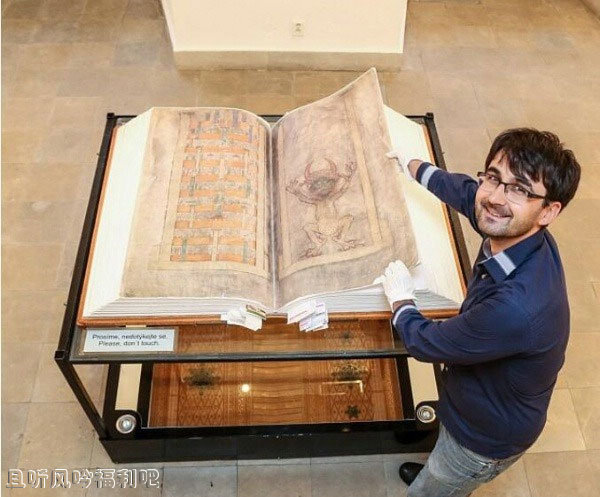 Prosíme, nedotýkejte se.
Please, don´t touch.
且听风吟福利吧